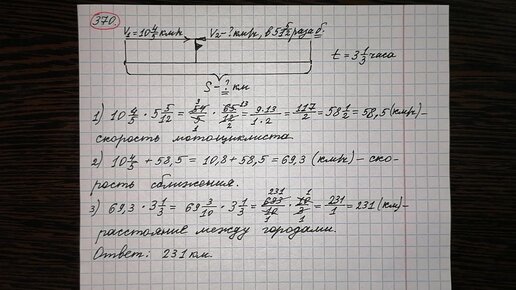 370.
V₁ = 10 4/5 км/ч V₂ - ? км/ч, в 5 5/12 раза б.
t = 3 1/3 часа
S - ? км
1) 10 4/5 · 5 5/12 = 54/5 · 65/12 = 9·13/1·2 = 117/2 = 58 1/2 = 58,5 (км/ч) –
скорость мотоциклиста.
2) 10 4/5 + 58,5 = 10,8 + 58,5 = 69,3 (км/ч) – ско-
рость сближения.
3) 69,3 · 3 1/3 = 69 3/10 · 3 1/3 = 693/10 · 10/3 = 231/1 = 231 (км) –
расстояние между городами.
Ответ: 231 км.